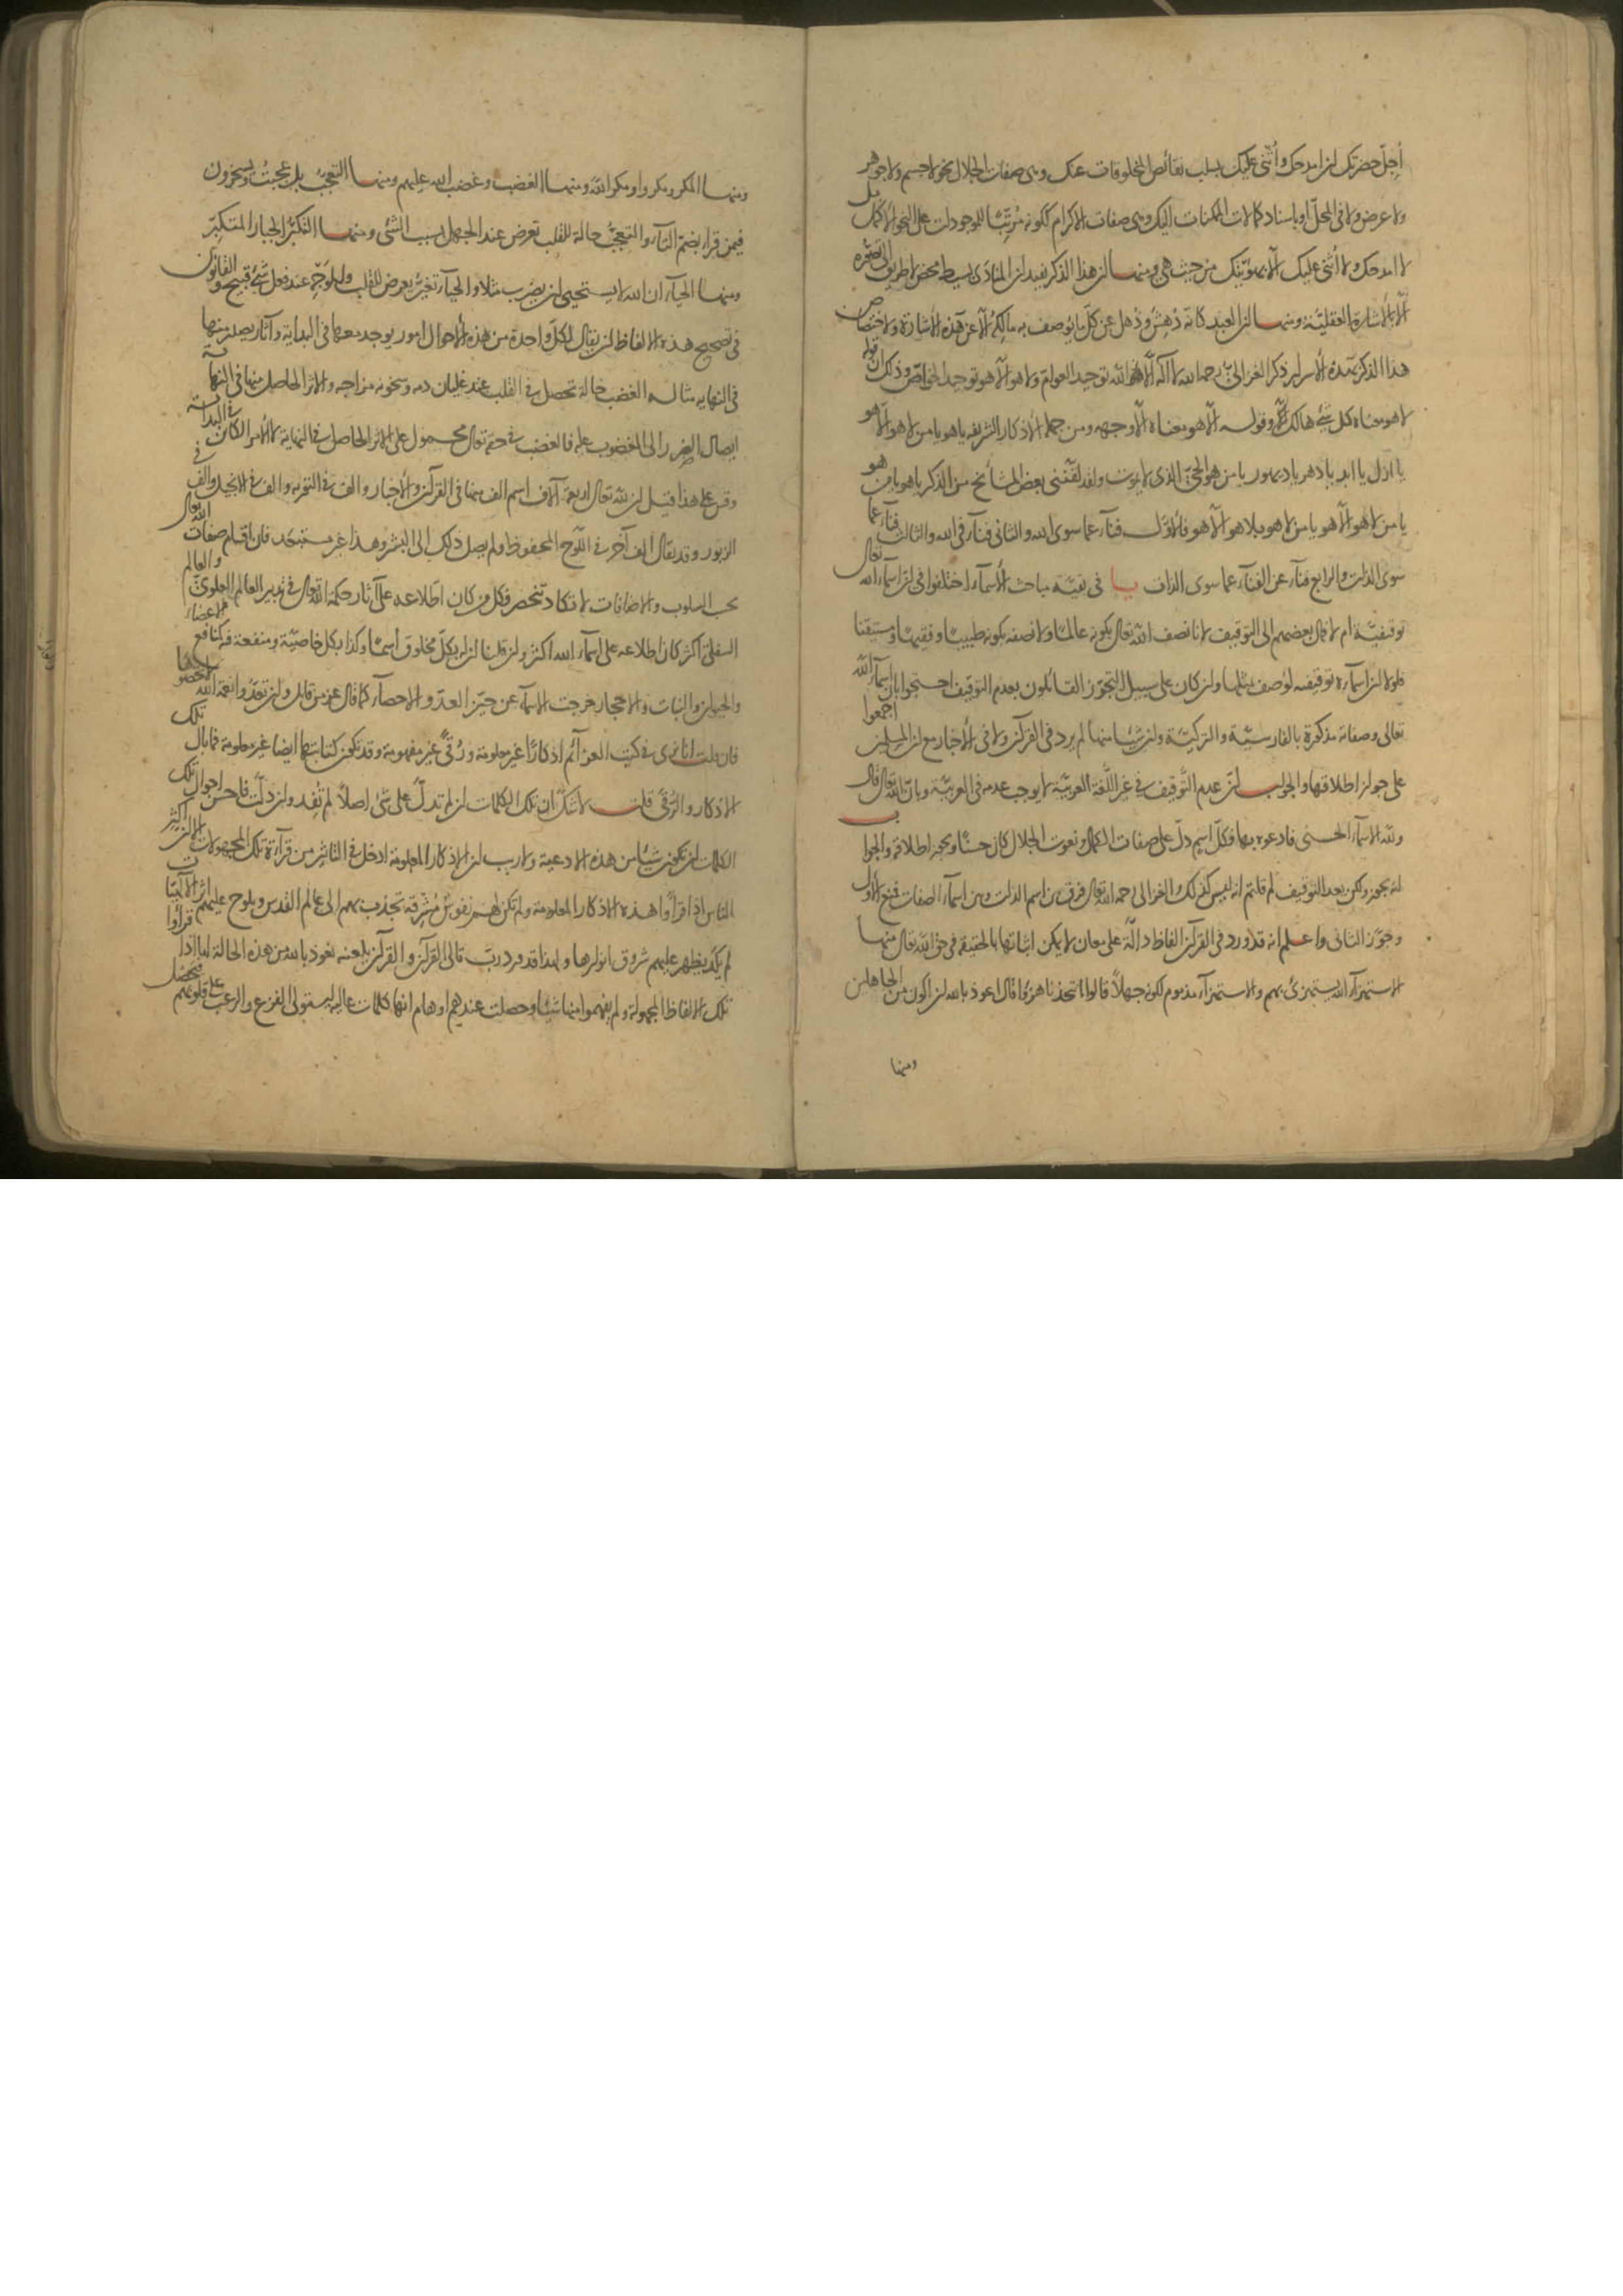 أجلّ حضرتك لن امدحك وأثنى عليك بسلب نقائص المخلوقات عنك وهى صفات الجلال نحو لا جسم ولا جوهر
ولا عرض ولا فى المحل او باسناد كمالات الممكنات اليك وهى صفات الاكرام ككونه مرتبا للموجودات على النحو الاكمل بل
لا امدحك ولا اثنى عليك الا بهويتك من حيث هى ومنها ان هذا الذكر يفيد ان المنادى بسيط محض لا طريق الى تصوره
الا بالاشارة العقلية ومنها ان العبد كانه دهش وذهل عن كل ما يوصف به مالكه الا عن هذه الاشارة ولاختصاص
هذا الذكر بهذه الأسرار ذكر الغزالى رحمه الله لا اله الا الله توحيد العوام ولا هو الا هو توحيد الخواص وذلك ان قوله
لا هو معناه كل شئ هالك وقوله الا هو معناه الا وجهه ومن جملة الأذكار الشريفة يا هو يا من لا هو الا هو
يا ازل يا ابد يا دهر يا ديهور يا من هو الحى الذى لا يموت ولقد لقننى بعض المشائخ من الذكر يا هو يا من هو
يا من لا هو الا هو يا من لا هو بلا هو الا هو فالأول فناء عما سوى الله والثانى فناء فى الله والثالث فناء عما
سوى الذات والرابع فناء عن الفناء عما سوى الذات يا فى بقية مباحث الأسماء اختلفوا فى ان اسماء الله تعالى
توقيفية ام لا قال بعضهم الى التوقيف لانا نصف الله تعالى بكونه عالما ولا نصفه بكونه طبيبا وفقيها ومستيقنا
فلولا ان اسماءه توقيفية لوصف بمثلها وان كان على سبيل التجوز القائلون بعدم التوقيف احتجوا بان اسماء الله
تعالى وصفاته مذكورة بالفارسية والتركية وان شيئا منها لم يرد فى القرآن ولا فى الأخبار مع ان المسلمين اجمعوا
على جواز اطلاقها والجواب ان عدم التوقيف فى غير اللغة العربية لا يوجب عدمه فى العربية وبان الله تعالى قال
ولله الاسماء الحسنى فادعوه بها فكل اسم دل على صفات الكمال ونعوت الجلال كان حسنا ويجوز اطلاقه والجواب
انه يجوز ولكن بعد التوقيف لم قلتم انه ليس كذلك والغزالى رحمه الله تعالى فرق بين اسم الذات وبين اسماء الصفات فمنع الأول
وجوز الثانى واعلم انه قد ورد فى القرآن الفاظ دالة على معان لا يمكن اثباتها بالحقيقة فى حق الله تعالى منها
الاستهزاء الله يستهزئ بهم والاستهزاء مذموم لكونه جهلا قالوا اتتخذنا هزوا قال اعوذ بالله ان اكون من الجاهلين
ومنها
ومنها المكر ومكروا ومكر الله ومنها الغضب وغضب الله عليهم ومنها التعجب بل عجبت ويسخرون
فيمن قرأ بضم التاء والتعجب حالة للقلب تعرض عند الجهل بسبب الشئ ومنها التكبر الجبار المتكبر
ومنها الحياء ان الله لا يستحيى ان يضرب مثلا والحياء تغير يعرض للقلب والوجه عند فعل شئ قبيح والقانون
فى تصحيح هذه الالفاظ ان يقال لكل واحدة من هذه الأحوال امور يوجد معها فى البداية وآثار يصدر منها
فى النهاية مثاله الغضب حالة تحصل فى القلب عند غليان دمه وسخونة مزاجه والاثر الحاصل منها فى النهاية
ايصال الضرر الى المغضوب عليه فالغضب فى حقه تعالى محمول على الاثر الحاصل فى النهاية لا الأمر الكائن فى البداية
وقس على هذا قيل ان لله تعالى اربعة آلاف اسم الف منها فى القرآن والأخبار والف فى التورية والف فى الانجيل والف فى
الزبور وقد يقال الف آخر فى اللوح المحفوظ ولم يصل ذلك الى البشر وهذا غير مستبعد فان اقسام صفات الله تعالى
بحسب السلوب والاضافات لا تكاد تنحصر فكل من كان اطلاعه على آثار حكمة الله تعالى فى تدبير العالم العلوى والعالم
السفلى اكثر كان اطلاعه على اسماء الله اكثر وان قلنا ان له بكل مخلوق اسما وكذا بكل خاصية ومنفعة فيه كمنافع الأعضاء
والحيوان والنبات والاحجار خرجت الاسماء عن حيز العد والاحصاء كما قال عز من قائل وان تعدوا نعمة الله لا تحصوها
فان قلت انا نرى فى كتب العزائم اذكارا غير معلومة ورقى غير مفهومة وقد تكون كتابتها ايضا غير معلومة فما بال تلك
الاذكار والرقى قلت لا شك ان تلك الكلمات ان لم تدل على شئ اصلا لم تفد وان دلت فاحسن احوال تلك
الكلمات ان تكون شيئا من هذه الادعية ولا ريب ان الاذكار المعلومة ادخل فى التأثير من قراءة تلك المجهولات الا ان اكثر
الناس اذا قرأوا هذه الاذكار المعلومة ولم تكن لهم نفوس مشرقة تجذب بهم الى عالم القدس ويلوح عليهم اثر الالٰهيات
لم يكد يظهر عليهم شروق انوارها ولهذا قد ورد رب تالى القرآن والقرآن يلعنه نعوذ بالله من هذه الحالة اما اذا قرأوا
تلك الالفاظ المجهولة ولم يفهموا منها شيئا وحصلت عندهم اوهام انها كلمات عالية استولى الفزع والرعب على قلوبهم فيحصل